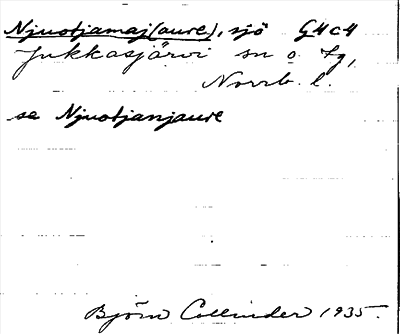 Njuotjamaj(aure), sjö G4c4
Jukkasjärvi sn o. tg,
Norrb. l.
se Njuotjanjaure
Björn Collinder 1935.